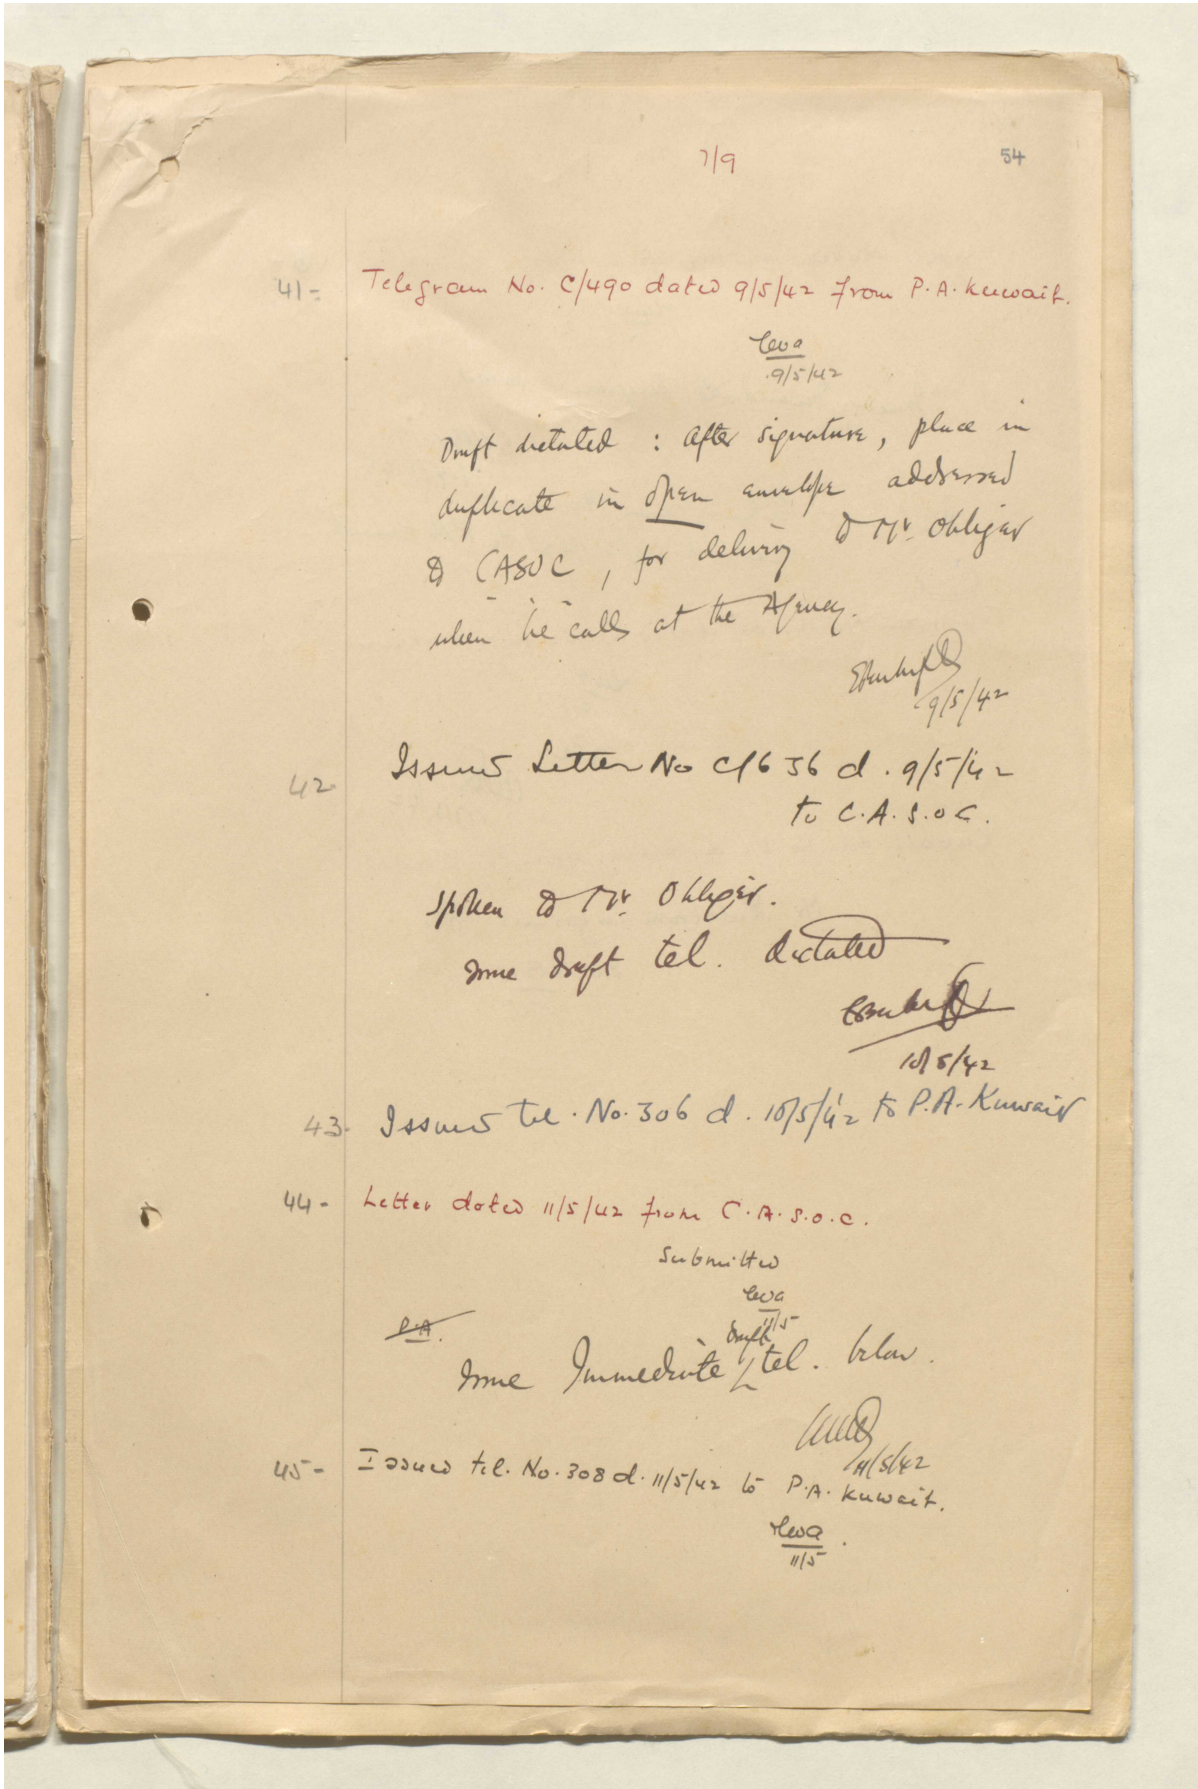 7/9
54
41- Telegram No. C/490 dated 9/5/42 from P.A. Kuwait.
9/5/42
Draft dictated : After signature, place in
duplicate in open envelope addressed
to CASOC, for delivery to Mr. Ohliger
when he calls at the Agency.
9/5/42
42 Issued Letter No C/636 d. 9/5/42
to C.A.S.O.C.
Spoken to Mr. Ohliger.
Issue draft tel. dictated
10/5/42
43- Issued tel. No. 306 d. 10/5/42 to P.A. Kuwait
44- Letter dated 11/5/42 from C.A.S.O.C.
Submitted
11/5
P.A.
draft
Issue Immediate tel. below.
11/5/42
45- Issued tel. No. 308 d. 11/5/42 to P.A. Kuwait.
11/5